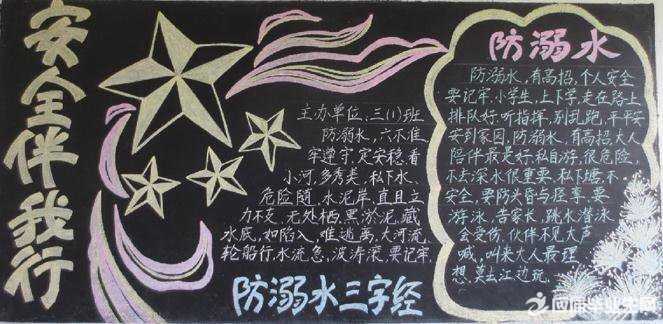 安全伴我行
主办单位,三(1)班
防溺水,六不准,
牢遵守,定安稳,看
小河,多秀美,私下水,
危险随,水泥岸,直且立
力不支,无处栖,黑淤泥,藏
水底,如陷入,难逃离,大河流,
轮船行,水流急,波涛滚,要记牢,
防溺水三字经
防溺水
防溺水,有高招,个人安全
要记牢,小学生,上下学,走在路上
排队好,听指挥,别乱跑,平平安
安到家园,防溺水,有高招,大人
陪伴最是好,私自游,很危险,
不去深水很重要,私下塘,不
安全,要防头昏与
游泳,告家长,跳水潜泳
会受伤,伙伴不见大声
喊,叫来大人最理
想,莫去江边玩.
应届毕业生网